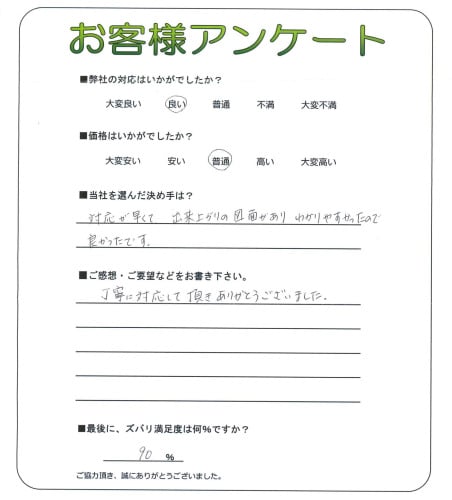 お客様アンケート
■弊社の対応はいかがでしたか？
大変良い 良い 普通 不満 大変不満
■価格はいかがでしたか？
大変安い 安い 普通 高い 大変高い
■当社を選んだ決め手は？
対応が早くて 出来上がりの図面があり わかりやすかったので
良かったです.
■ご感想・ご要望などをお書き下さい。
丁寧に対応して頂きありがとうございました.
■最後に、ズバリ満足度は何％ですか？
90 ％
ご協力頂き、誠にありがとうございました。